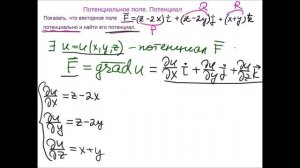 Потенциальное поле. Потенциал
Показать, что векторное поле F̄=(z-2x)i̅+(z-2y)j̅+(x+y)k̅
потенциально и найти его потенциал.
P Q R
∃ u=u(x,y,z) - потенциал F̄
F̄=grad u=∂u/∂x i̅+∂u/∂y j̅+∂u/∂z k̅
∂u/∂x=z-2x
∂u/∂y=z-2y
∂u/∂z=x+y